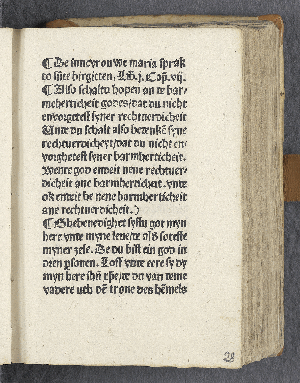 ¶ De iuncvrouwe maria sprak
to sūte birgitten, Li. j. Cap. vij.
¶ Also schaltu hopen an te bar-
meherticheit godes/dat du nicht
envorgetest syner rechtuerdicheit
Unte du schalt also betenkē syne
rechtuerdicheyt/dat du nicht en-
vorghetest syner barmherticheit.
Wente god endeit nene rechtuer-
dicheit ane barmherticheit. vnte
ok endeit he nene barmherticheit
ane rechtuerdicheit.
¶ Ghebenedighet systu got myn
here vnte myne leueste alß soteste
myner zele. De du bist ein got in
dren psonen. Loff vnte eere sy dy
myn here ihū du van teme
vadere uth dē trone des hēmels
28